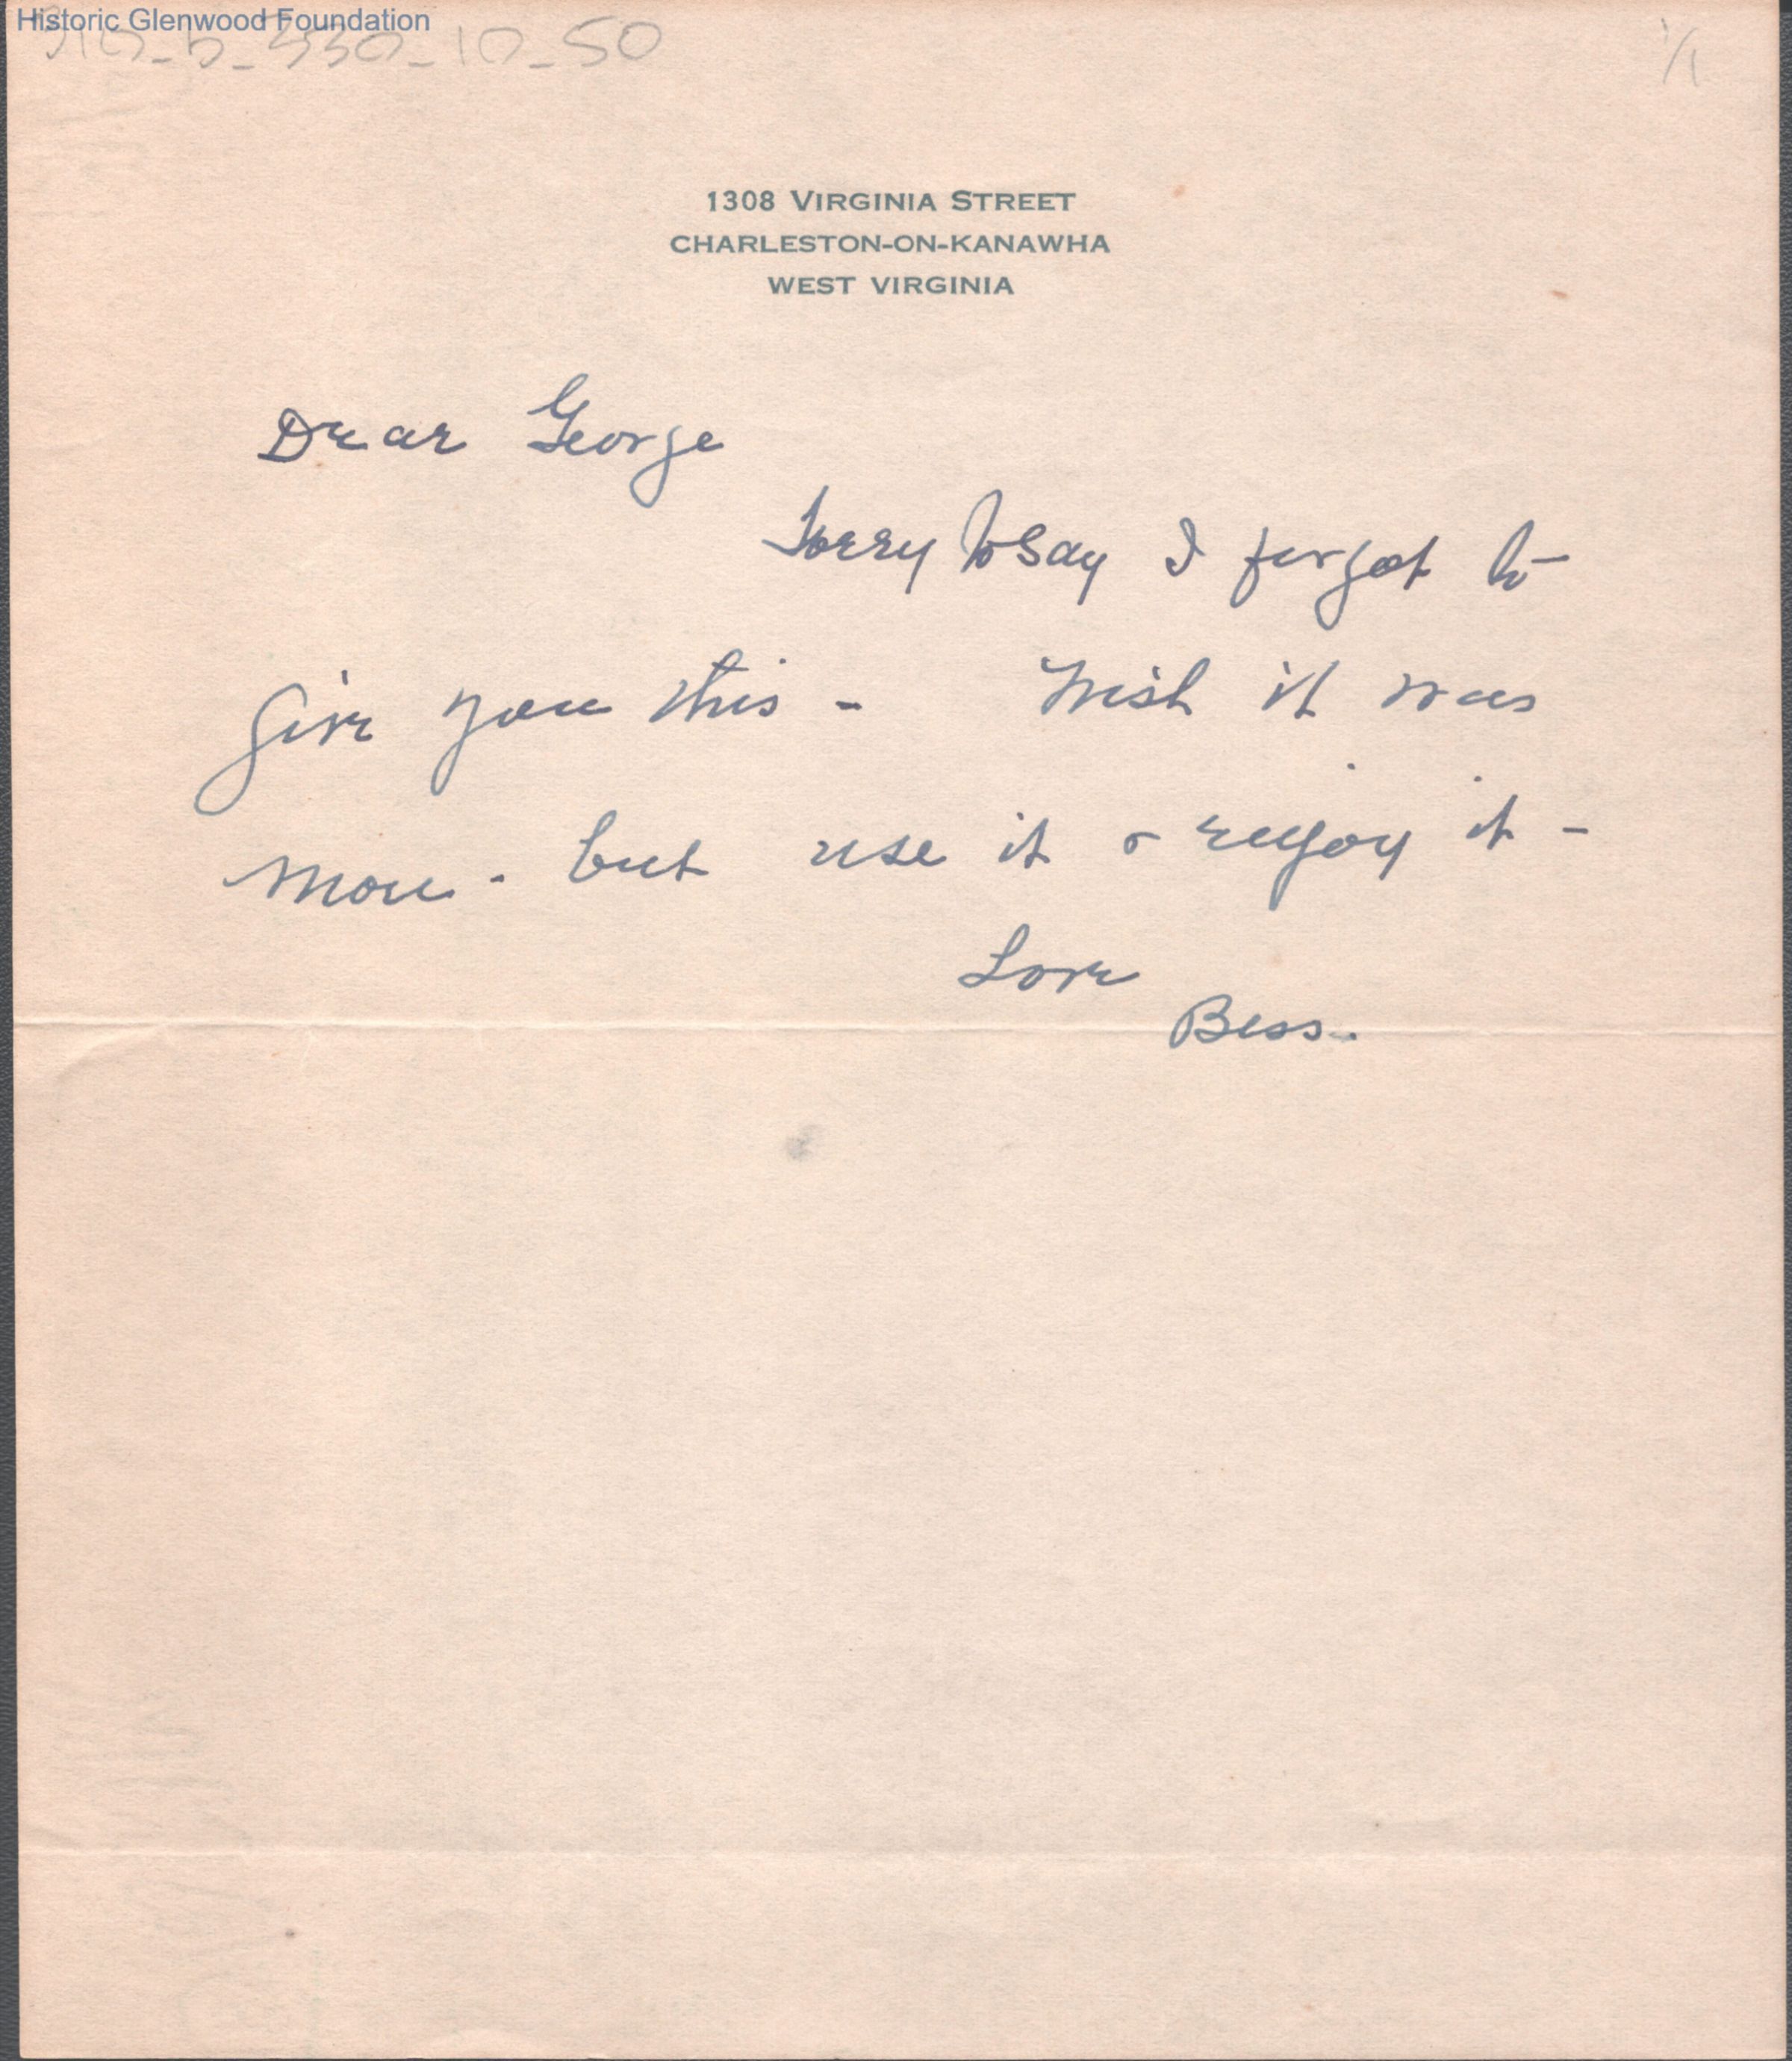 Historic Glenwood Foundation
1/1
1308 VIRGINIA STREET
CHARLESTON-ON-KANAWHA
WEST VIRGINIA
Dear George
Sorry to say I forgot to
give you this - Wish it was
more - but use it & enjoy it -
Love
Bess.